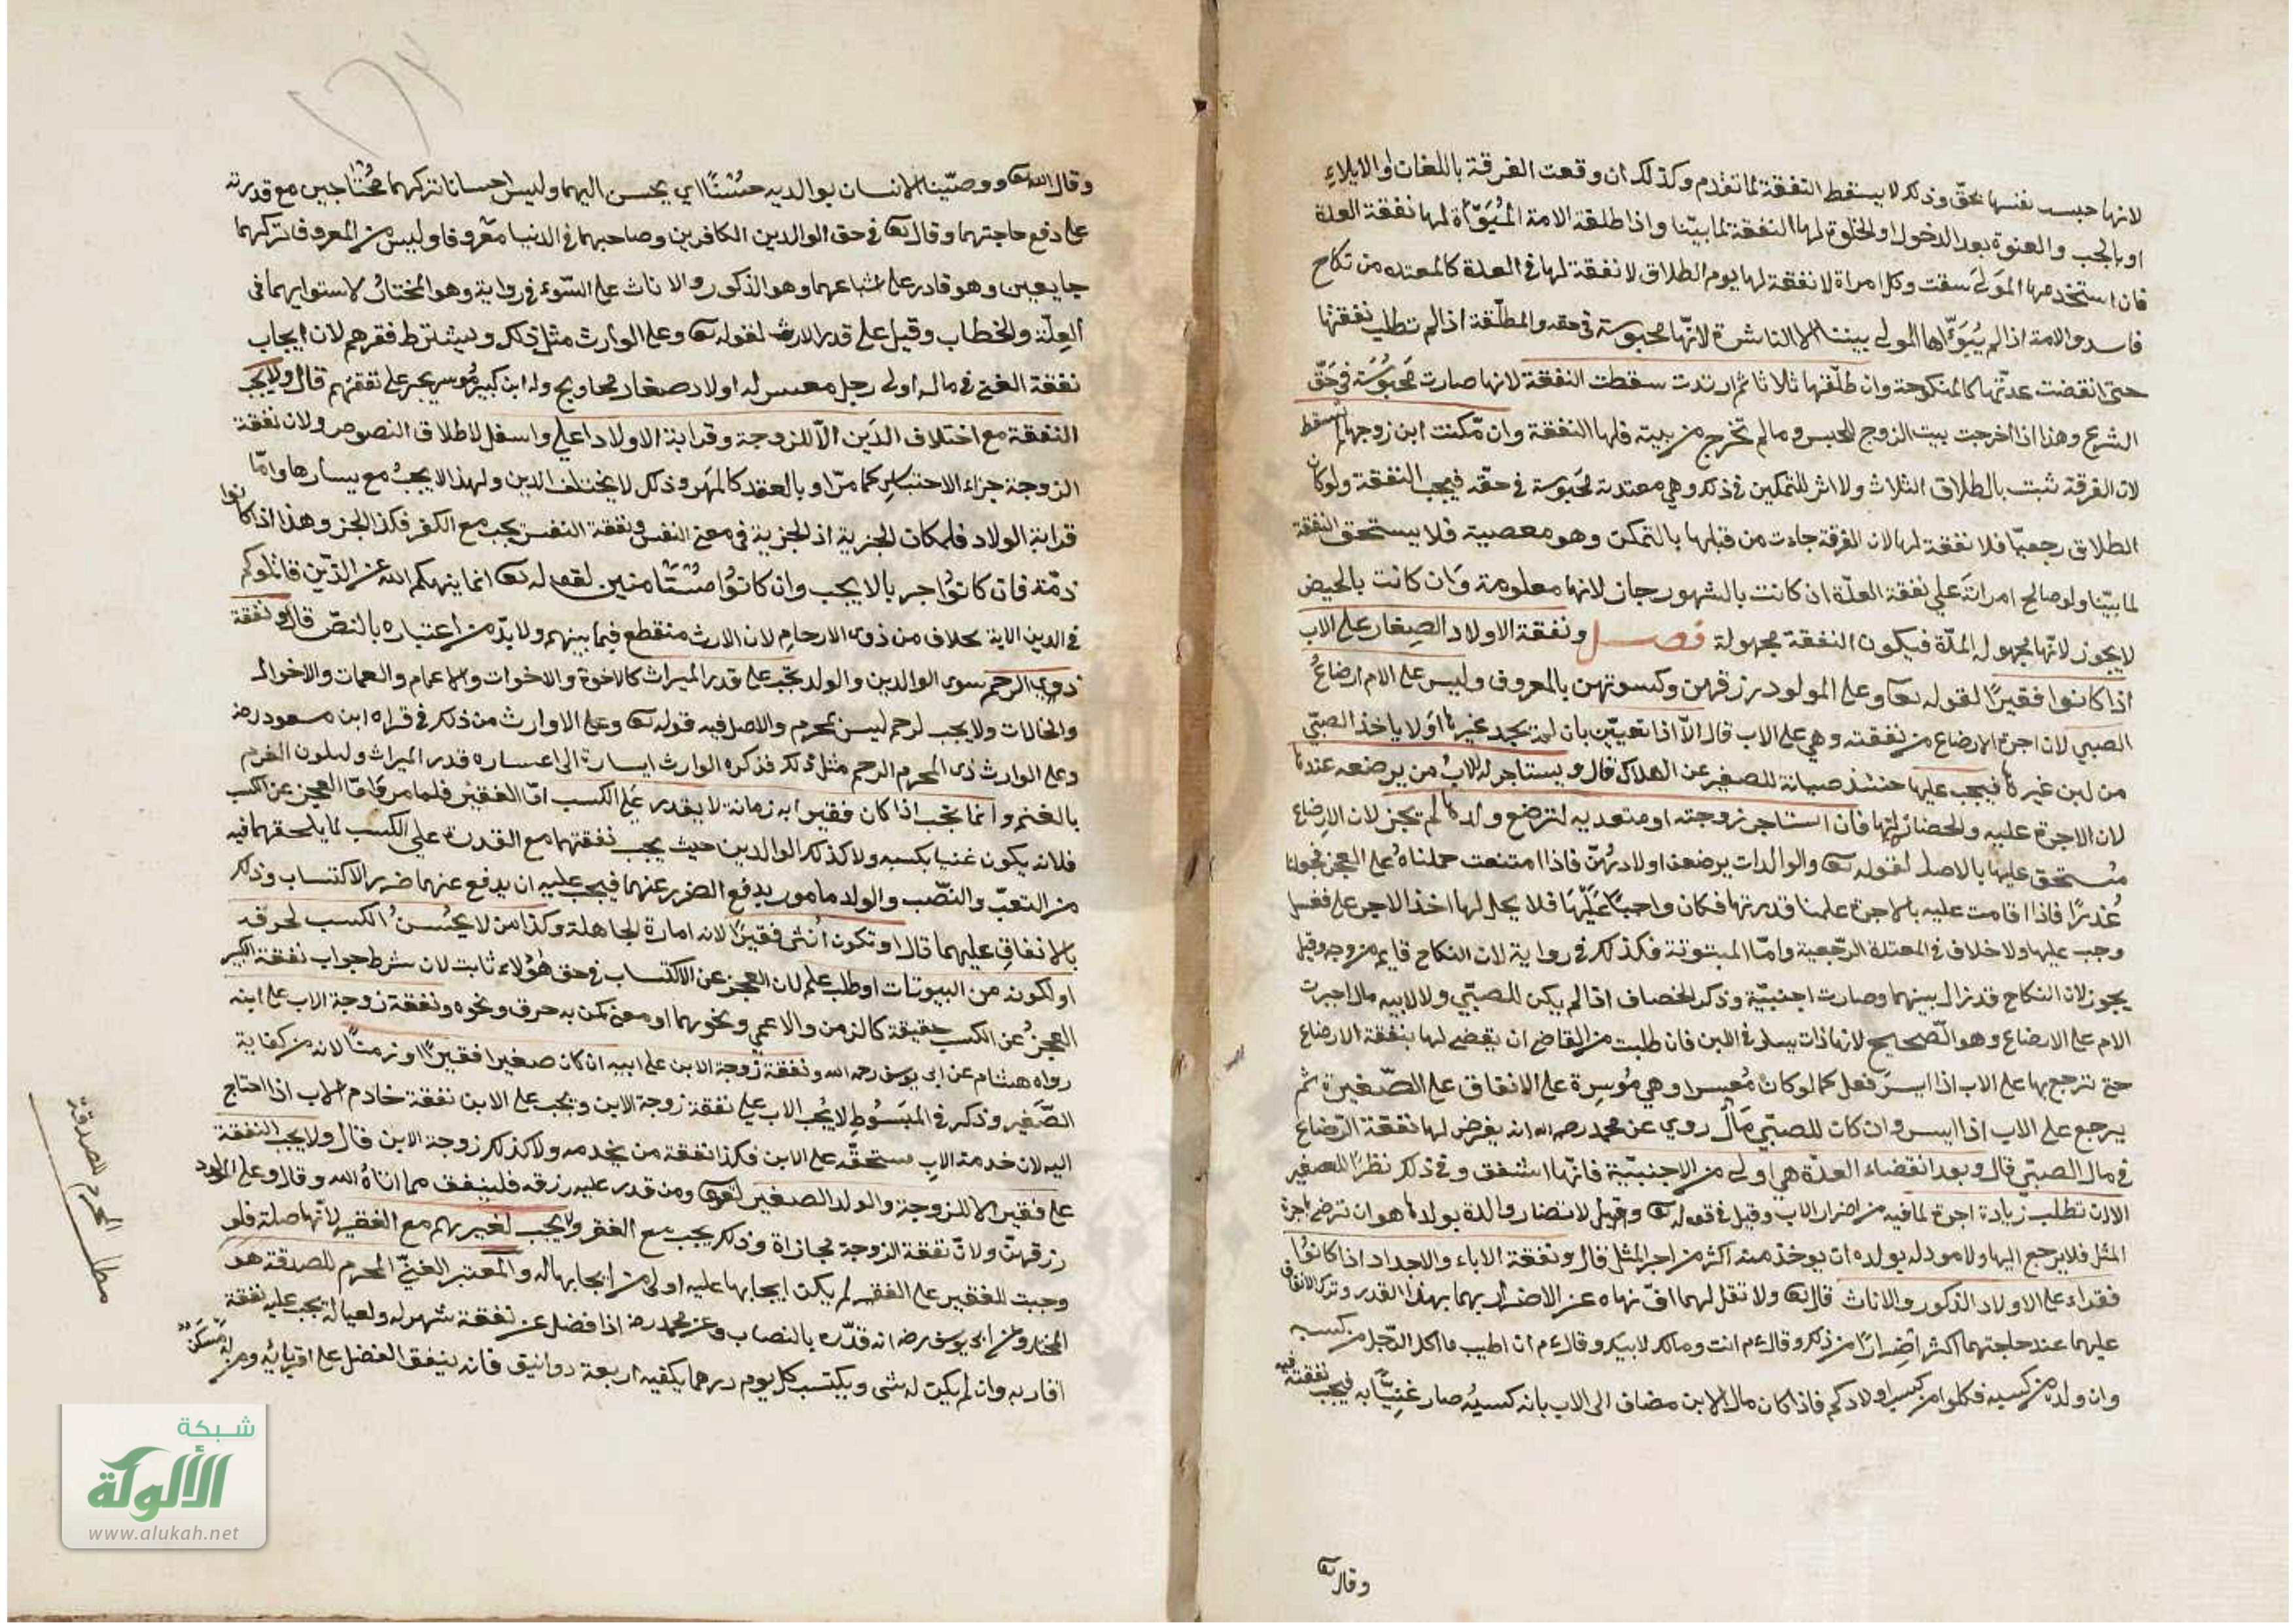 لانها حبست نفسها بحقّ وذلك لا يسقط النفقة لما تقدم وكذلك ان وقعت الفرقة باللعان او الايلاء
او بالجب والعنة بعد الدخول او الخلوة لها النفقة لما بيّنا واذا طلقة الامة المُبَوّأة لها نفقة العدة
فان استخدمها المَولَى سقت وكل امراة لا نفقة لها يوم الطلاق لا نفقة لها في العدة كالمعتده من نكاح
فاسد والامة اذا لم يُبَوّاها المولى بيتنا الا الناشرة لانّها محبوسة في حقه والمطلّقة اذا لم تطلب نفقتها
حتى انقضت عدتّها كالمنكوحة وان طلّقها ثلاثا ثم ارتدت سقطت النفقة لانها صارت مَحَبوُسَة في حَقّ
الشرع وهذا اذا اخرجت بيت الزوج للحبس وما لم تخرج من بيته فلها النفقة وان مّكنت ابن زوجها لم تسقط
لان الفرقة ثبت بالطلاق الثلاث ولا اثر للتمكين في ذلك وهي معتدة محبوسة في حقّه فيجب النفقة ولو كان
الطلاق رجعيّا فلا نفقة لها لان الفرقة جاءت من قبلها بالتمكن وهو معصية فلا يستحق النفقة
لما بيّنا ولو صالح امراته على نفقة العدّة ان كانت بالشهور جاز لانها معلومة وَان كانت بالحيض
لا يجوز لانّها مجهولة المدّة فيكون النفقة مجهولة فصل ونفقة الاولاد الصِغار على الاب
اذا كانوا فقيرًا لقوله تعا وعلى المولود رزقهن وكسوتهن بالمعروف وليس على الام ارضاعُ
الصبي لان اجرة الارضاع من نفقته وهي على الاب قال الّا اذا تعيّنت بان لم تجد غيرها او لا ياخذ الصبّي
من لبن غيرها فيجب عليها حنئذ صيانة للصغير عن الهلاك قال ويستاجر له الاب من يرضعه عندها
لان الاجرة عليه والحضانة لها فان استاجر زوجته او معتدته لترضع ولدها لم يجز لان الارضاع
مُستحق عليها بالاصل لقوله تعا والوالدات يرضعن اولادهُنّ فاذا امتنعت حملناهُ على العجز فجعلنا
عُذرًا فاذا اقامت عليه بالاجرة علمنا قدرتها فكان واجبًا عَلَيْهَا فلا يحل لها اخذ الاجر على فعل
وجب عليها ولا خلاف في المعتدة الرّجعية وامّا المبتوتة فكذلك في رواية لان النكاح قايم من وجه وقيل
يجوز لان النكاح قد زال بينهما وصارت اجنبيّة وذكر الخصاف اذا لم يكن للصبّي ولا لابيه مال اجبرت
الام على الارضاع وهو الصّحيح لانها ذات يسار في اللبن فان طلبت من القاضي ان يقضي لها بنفقة الارضاع
حتى ترجع بها على الاب اذا ايسَرَ فعل كما لو كان مُعسرا وهي مُوسِرة على الانفاق على الصّغيرة ثم
يرجع على الاب اذا ايسر وان كان للصبّي مَالٌ روي عن محمد رحمه الله انه يفرض لها نفقة الرّضاع
في مال الصبّي قال وبعد انقضاء العدّة هي اولى من الاجنبيّة فانّها اشفق وفي ذلك نظرًا للصغير
الا ان تطلب زيادة اجرة لما فيه من اضرار الاب وقيل في قوله تعا لا تضار والدة بولدها هو ان ترضى باجرة
المثل فلا يرجع اليها ولا مودله بولده ان يوخذ منه اكثر من اجر المثل قال ونفقة الاباء والاجداد اذا كانوُا
فقراء على الاولاد الذكور والاناث قال تعا ولا تقل لهما افّ نهاه عن الاضرار بهما بهذا القدر وترك الانفاق
عليهما عند حاجتهما اكثر اضِرارًا من ذلك وقال ء م انت ومالك لابيك وقال ء م ان اطيب ما اكل الرّجل من كسبه
وان ولده من كسبه فكلوا من كسب اولادكم فاذا كان مال الابن مضاف الى الاب بانه كسبُه صار غنِيًّا به فيجب نفقته فيه
وقال تعا
وقال الله تعا ووصّينا الانسان بوالديه حُسْنًا اي يحسن اليهما وليس احسانا تركهما محُتاجين مع قدرته
على دفع حاجتهما وقال تعا في حق الوالدين الكافرين وصاحبهما في الدنيا معروفا وليس من المعروف تركهما
جايعين وهو قادر على اشباعهما وهو الذكور والاناث على السّوء في رواية وهو المختار لاستوايهما في
العِلّة والخطاب وقيل على قدر الارث لقوله تعا وعلى الوارث مثل ذلك ويشترط فقرهم لان ايجاب
نفقة الغني في ماله اولى رجل معسر له اولاد صغار محاويج وله ابن كبير مُوسر يجبر على نفقتهم قال ولا يجب
النفقة مع اختلاف الدَين الّا للزوجة وقرابة الاولاد اعلى واسفل لاطلاق النصوص ولان نفقة
الزوجة جزاء الاحتباس كما مرّ او بالعقد كالمهر وذلك لا يختلف الدين ولهذا لا يجبُ مع يسارها وامّا
قرابة الولاد فلمكان الجزية اذ الجزية في معنى النفس ونفقة النفس يجب مع الكفر فكذا الجز وهذا اذا كانوا
ذمّة فان كانوُا حربا لا يجب وان كانوُا مستَامنين لقوله تعا انما ينهكم الله عن الذّين قاتلوكم
في الدين الاية بخلاف من ذوى الارحام لان الارث منقطع فيما بينهم ولا بدّ من اعتباره بالنصّ قال ونفقة
ذوى الرحم سوى الوالدين والولد تجّب على قدر الميراث كالاخوة والاخوات والاعمام والعمات والاخوال
والخالات ولا يجب لرحم ليس بمحرم والاصل فيه قوله تعا وعلى الاوارث من ذلك في قراة ابن مسعود رضه
وعلى الوارث ذى المحرم الرحم مثل ذلك فذكره الوارث ايسارة الى اعساره قدر الميراث وليلون الغرم
بالغنم وانما يجب اذا كان فقير ابه زمانة لا يقدر عَلى الكسب امّا الفقير فلما مر وَامّا العجز عن الكسب
فلانه يكون غنيا بكسبه ولا كذلك الوالدين حيث يجب نفقتهما مع القدرة على الكسب لما يلحقهما فيه
من التعبّ والنصّب والولد مامور بدفع الضرر عنهما فيجب عليه ان يدفع عنهما ضرر الاكتساب وذلك
بالانفاق عليهما قال او تكون اُنثى فقيرًا لانه امارة الجاهلة وكذا من لا يحُسنُ الكسب لخرقه
او لكونه من البيوتات او طلب علم لان العجز عن الاكتساب في حق هؤلاء ثابت لان شرط جواب نفقة الكبير
العجزُ عن الكسب حقيقة كالزمن والاعمى ونحوهما او معنى كمن به خرق ونحوه ونفقة زوجة الاب على ابنه
رواه هشام عن ابى يوسف رحمه الله ونفقة زوجة الابن على ابيه ان كان صغيرا فقيرًا او زمنًا لانه من كفاية
الصَّغير وذكر في المبَسُوطِ لا يُجب الاب على نفقة زوجة الابن ويجب على الابن نفقة خادم الاب اذا احتاج
اليه لان خدمة الابِ مستحقّه على الابن فكذا نفقة من يخدمه ولا كذلك زوجة الابن قال ولا يجب النفقة
على فقير الا للزوجة والولد الصغير لقوله تعا ومن قدر عليه رزقه فلينفق مما اتاهُ الله وقال وعلى المولود
رزقهن ولانّ نفقة الزوجة مُجازاة وذلك يجب مع الفقر ولا يجب لغيرهم مع الفقر لانّها صلة فلو
وجبت للفقير على الفقير لم يكن ايجابها عليه اولى من ايجابها له والمعتبر الغنىّ المحرم للصدقة هو
المختار وعن ابى يوسف رضه انه قدّره بالنصاب وعن محمد رضه اذا فضل عن نفقة شهر له ولعياله تجب عليه نفقة
اقاربه وان لم يكن له شى ويكتسب كل يوم درهما يكفيه اربعة دوانيق فانه ينفق الفضل على اقربائه ومن له مَسكَنٌ
مطلب المحرم للصدقة
شبكة
الألوكة
www.alukah.net